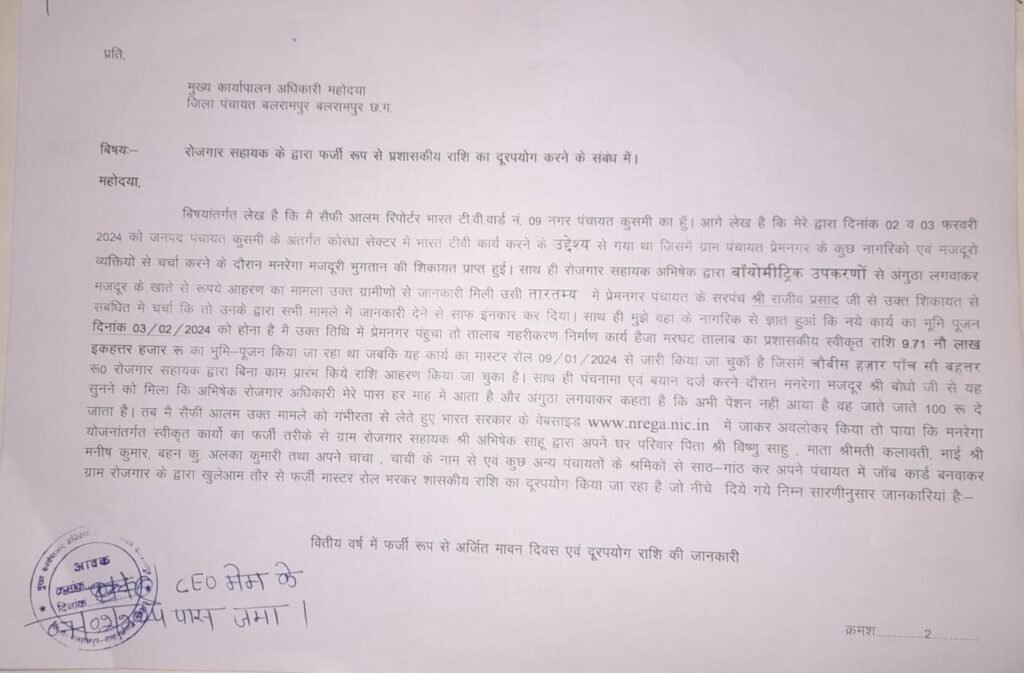 प्रति,
मुख्य कार्यापालन अधिकारी महोदया
जिला पंचायत बलरामपुर बलरामपुर छ.ग.
बिषयः– रोजगार सहायक के द्वारा फर्जी रूप से प्रशासकीय राशि का दूरपयोग करने के संबंध में।
महोदया,
बिषयांतर्गत लेख है कि मै सैफी आलम रिपोर्टर भारत टी.वी.वार्ड नं. 09 नगर पंचायत कुसमी का हुँ। आगे लेख है कि मेरे द्वारा दिनांक 02 व 03 फरवरी
2024 को जनपद पंचायत कुसमी के अंतर्गत कोरंधा सेक्टर में भारत टीवी कार्य करने के उद्देश्य से गया था जिसमें ग्राम पंचायत प्रेमनगर के कुछ नागरिको एवं मजदूरो
व्यक्तियों से चर्चा करने के दौरान मनरेगा मजदूरी भुगतान की शिकायत प्राप्त हुई। साथ ही रोजगार सहायक अभिषेक द्वारा बॉयोमीट्रिक उपकरणों से अंगुठा लगवाकर
मजदूर के खाते से रूपये आहरण का मामला उक्त ग्रामीणों से जानकारी मिली उसी तारतम्य में प्रेमनगर पंचायत के सरपंच श्री राजीव प्रसाद जी से उक्त शिकायत से
संबंधित मे चर्चा कि तो उनके द्वारा सभी मामले में जानकारी देने से साफ इंनकार कर दिया। साथ ही मुझे वहां के नागरिक से ज्ञात हुआं कि नये कार्य का भूमि पूजन
दिनांक 03/02/2024 को होना है मै उक्त तिथि में प्रेमनगर पंहुचा तो तालाब गहरीकरण निर्माण कार्य हैजा मरघट तालाब का प्रशासकीय स्वीकृत राशि 9.71 नौ लाख
इकहत्तर हजार रू का भुमि–पूजन किया जा रहा था जबकि यह कार्य का मास्टर रोल 09/01/2024 से जारी किया जा चुकॉ है जिसमें चौबीम हज़ार पाँच मौ बहत्तर
रू0 रोजगार सहायक द्वारा बिना काम प्रारंभ किये राशि आहरण किया जा चुका है। साथ ही पंचनामा एवं बयान दर्ज करने दौरान मनरेगा मजदूर श्री बोधो जी से यह
सुनने को मिला कि अभिषेक रोजगार अधिकारी मेरे पास हर माह में आता है और अंगुठा लगवाकर कहता है कि अभी पेंशन नही आया है वह जाते जाते 100 रू दे
जाता है। तब मै सैफी आलम उक्त मामले को गंभीरता से लेते हुए भारत सरकार के वेबसाइड www.nrega.nic.in में जाकर अवलोकर किया तो पाया कि मनरेगा
योजनांतर्गत स्वीकृत कार्यो का फर्जी तरीके से ग्राम रोजगार सहायक श्री अभिषेक साहू द्वारा अपने घर परिवार पिता श्री विष्णु साहु , माता श्रीमती कलावती, भाई श्री
मनीष कुमार, बहन कु. अलका कुमारी तथा अपने चाचा , चाची के नाम से एवं कुछ अन्य पंचायतों के श्रमिकों से साठ–गांठ कर अपने पंचायत में जॉब कार्ड बनवाकर
ग्राम रोजगार के द्वारा खुलेआम तौर से फर्जी मास्टर रोल भरकर शासकीय राशि का दूरपयोग किया जा रहा है जो नीचे दिये गये निम्न सारणीनुसार जानकारियां हैः–
वितीय वर्ष में फर्जी रूप से अर्जित मावन दिवस एवं दूरपयोग राशि की जानकारी
आवक
क्रमांक
दिनांक
CEO मेम के
पास जमा।
क्रमश..............2..............